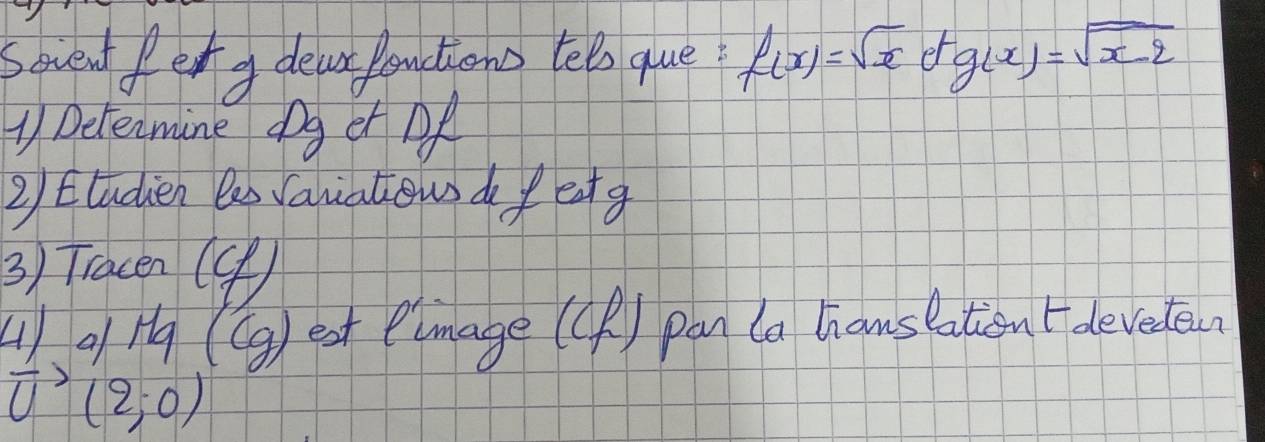 Soient f et g deux fonctions tels que : f(x)=√x et g(x)=√x-2
1) Determine Dg et Df
2) Etudier les variations de f et g
3) Tracer (Cf)
4) a) Mq (Cg) est l'image (Cf) par la translation t de vecteur
U→ (2;0)